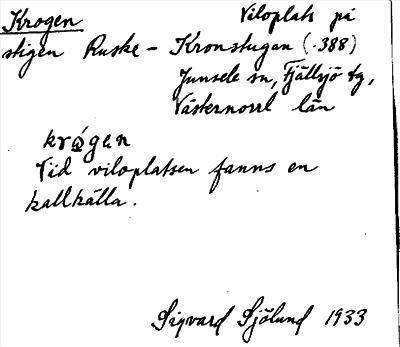 Krogen Viloplats på
stigen Ruske - Kronstugan (.388)
Junsele sn, Fjällsjö tg,
Västernorrl län
krógen
Vid viloplatsen fanns en
kallkälla.
Sigvard Sjölund 1933